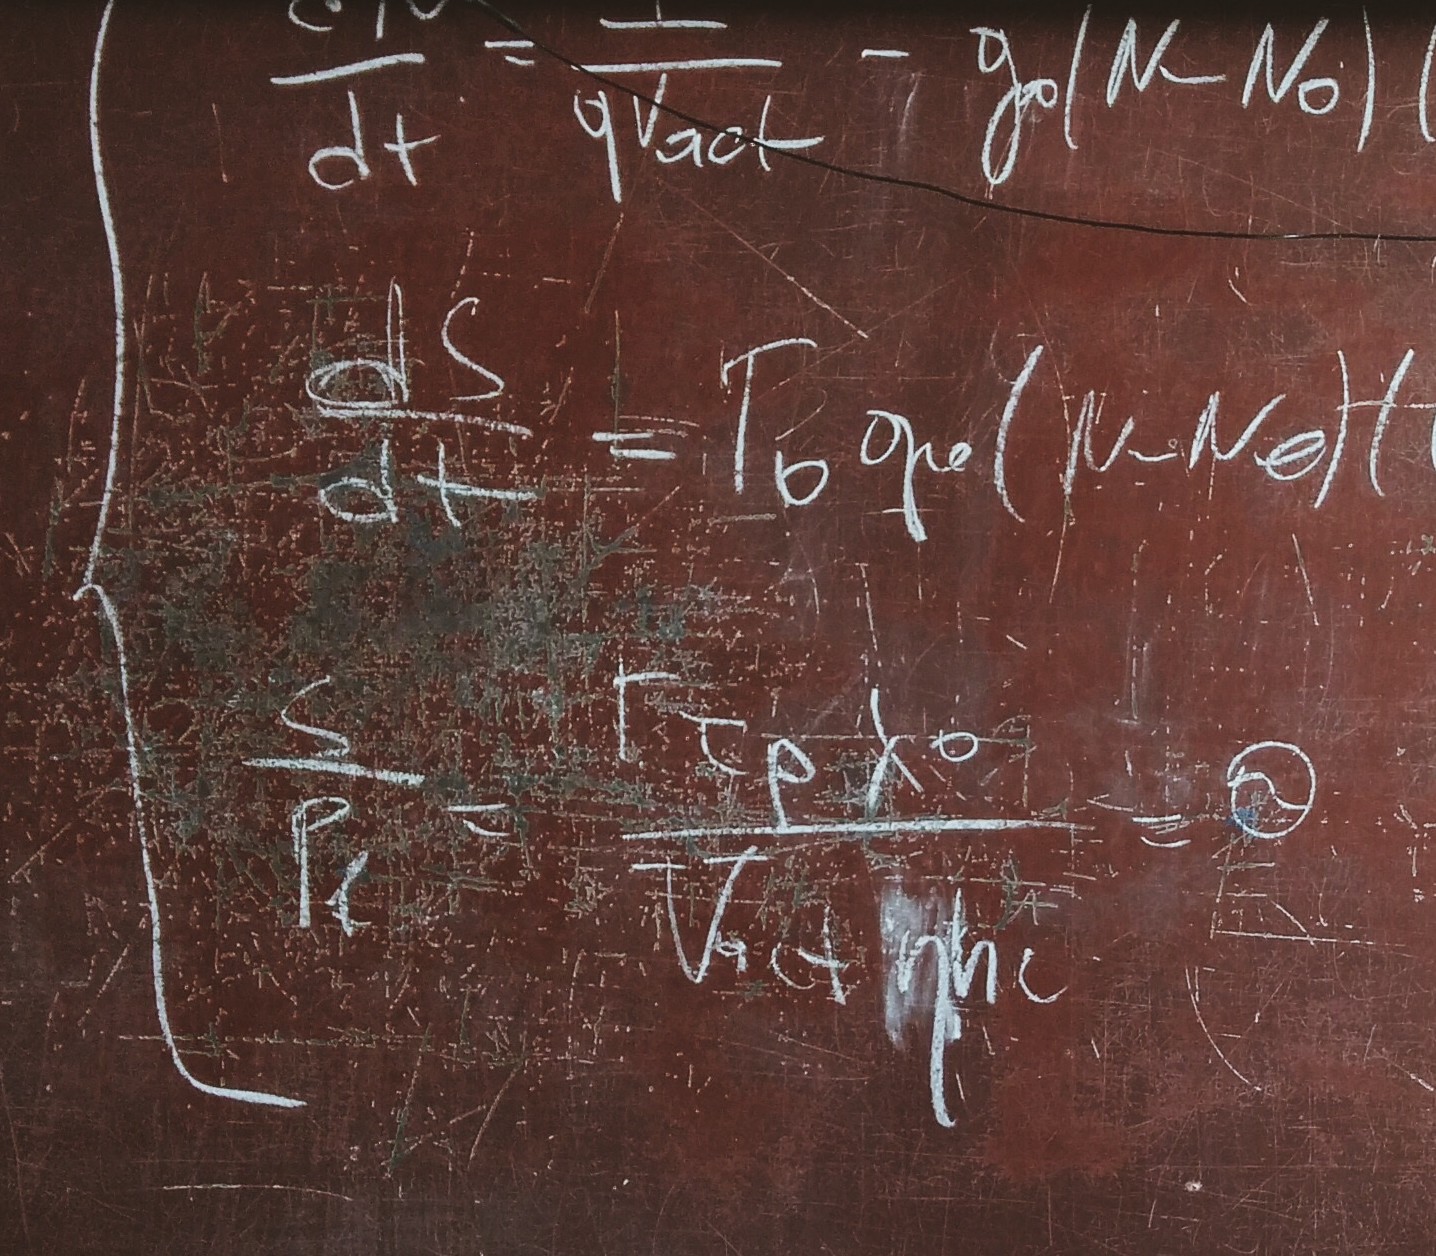 dN/dt = I/qVact - g0(N-N0)(
dS/dt = Γ0 g0(N-N0)(
S/Pf = Γτpλ0/Vactηhc = ②